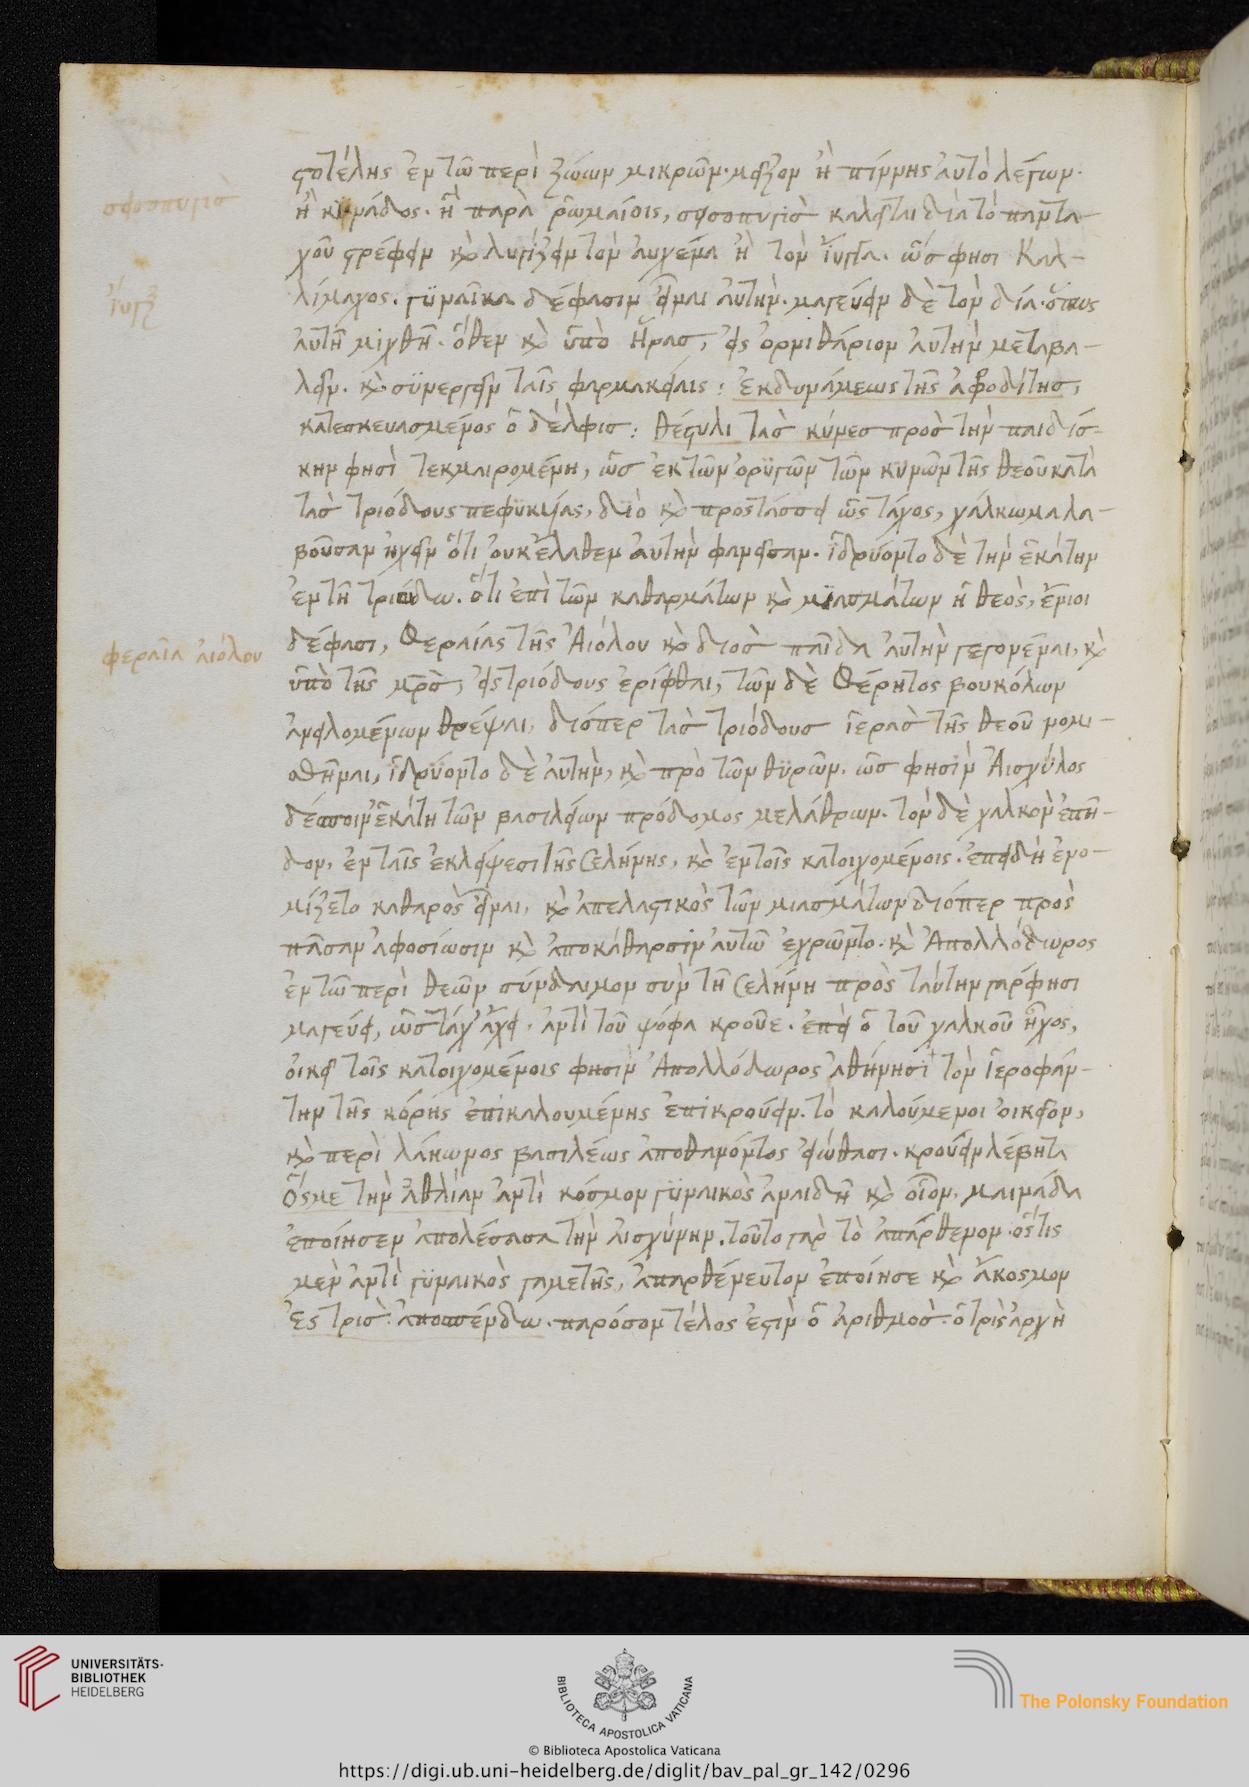 στοτέλης ἐν τῶ περὶ ζώων μικρῶν. μεῖζον ἢ πίννης αὐτὸ λέγων.
σφοσπυγὶσ
ἢ κιγκάδος. ἢ παρὰ ῥωμαίοις, σφοσπυγὶσ καλεῖται διὰ τὸ παντα-
χοῦ στρέφειν καὶ λυγίζειν τὸν αὐχένα ἢ τὸν ἴυγγα. ὥς φησι Καλ-
ἴυγξ
λίμαχος. γυναῖκα δέ φασιν εἶναι αὐτην. μαγεύειν δὲ τὸν δία. ὅπως
αὐτῆ μιχθῆ. ὅθεν καὶ ὑπὸ ἥρασ, εἰς ὀρνιθάριον αὐτὴν μεταβα-
λεῖν. καὶ συνεργεῖν ταῖς φαρμακείαις: ἐκ δυνάμεως τῆς ἀφροδίτησ,
κατεσκευασμένος ὁ δέλφισ: θέστυλι τὰσ κύνεσ πρὸσ τὴν παιδίσ-
κην φησὶ τεκμαιρομένη, ὡσ ἐκ τῶν ὀρυγῶν τῶν κυνῶν τῆς θεοῦ κατὰ
τὰσ τριόδους πεφυκυίας, διὸ καὶ προστάσσει ὡς τάχος, χάλκωμα λα-
βοῦσαν ἠχεῖν ὅτι οὐκ ἔλαθεν αὐτὴν φανεῖσαν. ἱδρύοντο δὲ τὴν ἑκάτην
ἐν τῆ τριόδω. ὅτι ἐπὶ τῶν καθαρμάτων καὶ μιασμάτων ἡ θεὸς, ἔνιοι
φεραῖα αἰόλου
δέ φασι, Φεραίας τῆς Ἀιόλου καὶ διὸσ παῖδα αὐτὴν γεγονέναι, καὶ
ὑπὸ τῆς μρὸσ, εἰς τριόδους ἐρίφθαι, τῶν δὲ Φέρητος βουκόλων
ἀνελομένων θρέψαι, διόπερ τὰσ τριόδουσ ἱερὰσ τῆς θεοῦ νομι-
σθῆναι, ἱδρύοντο δὲ αὐτὴν, καὶ πρὸ τῶν θυρῶν. ὥσ φησὶν Ἀισχύλος
δέσποιν ἑκάτη τῶν βασιλείων πρόδομος μελάθρων. τὸν δὲ χαλκὸν ἐπῆ-
δον, ἐν ταῖς ἐκλείψεσι τῆς Σελήνης, καὶ ἐν τοῖς κατοιχομένοις. ἐπειδὴ ἐνο-
μίζετο καθαρὸς εἶναι, καὶ ἀπελαστικὸς τῶν μιασμάτων διόπερ πρὸς
πᾶσαν ἀφοσίωσιν καὶ ἀποκάθαρσιν αὐτῶ ἐχρῶντο. καὶ Ἀπολλόδωρος
ἐν τῶ περὶ θεῶν σύνδαιμον σὺν τῆ Σελήνη πρὸς ταύτην γάρ φησι
μαγεύει, ὡσ τάχ' ἄχει. ἀντὶ τοῦ ψόφα κροῦε. ἐπεὶ ὁ τοῦ χαλκοῦ ἦχος,
οἰκεῖ τοῖς κατοιχομένοις φησὶν Ἀπολλόδωρος ἀθήνησι τὸν ἱεροφάν-
την τῆς κόρης ἐπικαλουμένης ἐπικρούειν. τὸ καλούμενοι οἰκεῖον,
καὶ περὶ λάκωνος βασιλέως ἀποθανόντος εἰώθασι. κρούειν λέβητα
ὅς με τὴν ἀθλίαν ἀντὶ κόσμου γυναικὸς ἀναιδῆ καὶ οἷον, μαινάδα
ἐποίησεν ἀπολέσασα τὴν αἰσχύνην. τοῦτο γὰρ τὸ ἀπάρθενον. ὅστις
μὲν ἀντὶ γυναικὸς γαμετῆς, ἀπαρθένευτον ἐποίησε καὶ ἄκοσμον
ἐς τρὶσ ἀποσπένδω. παρόσον τέλος ἐστὶν ὁ ἀριθμὸσ. ὁ τρὶς ἀρχὴ
UNIVERSITÄTS-
BIBLIOTHEK
HEIDELBERG
BIBLIOTECA APOSTOLICA VATICANA
The Polonsky Foundation
© Biblioteca Apostolica Vaticana
https://digi.ub.uni-heidelberg.de/diglit/bav_pal_gr_142/0296